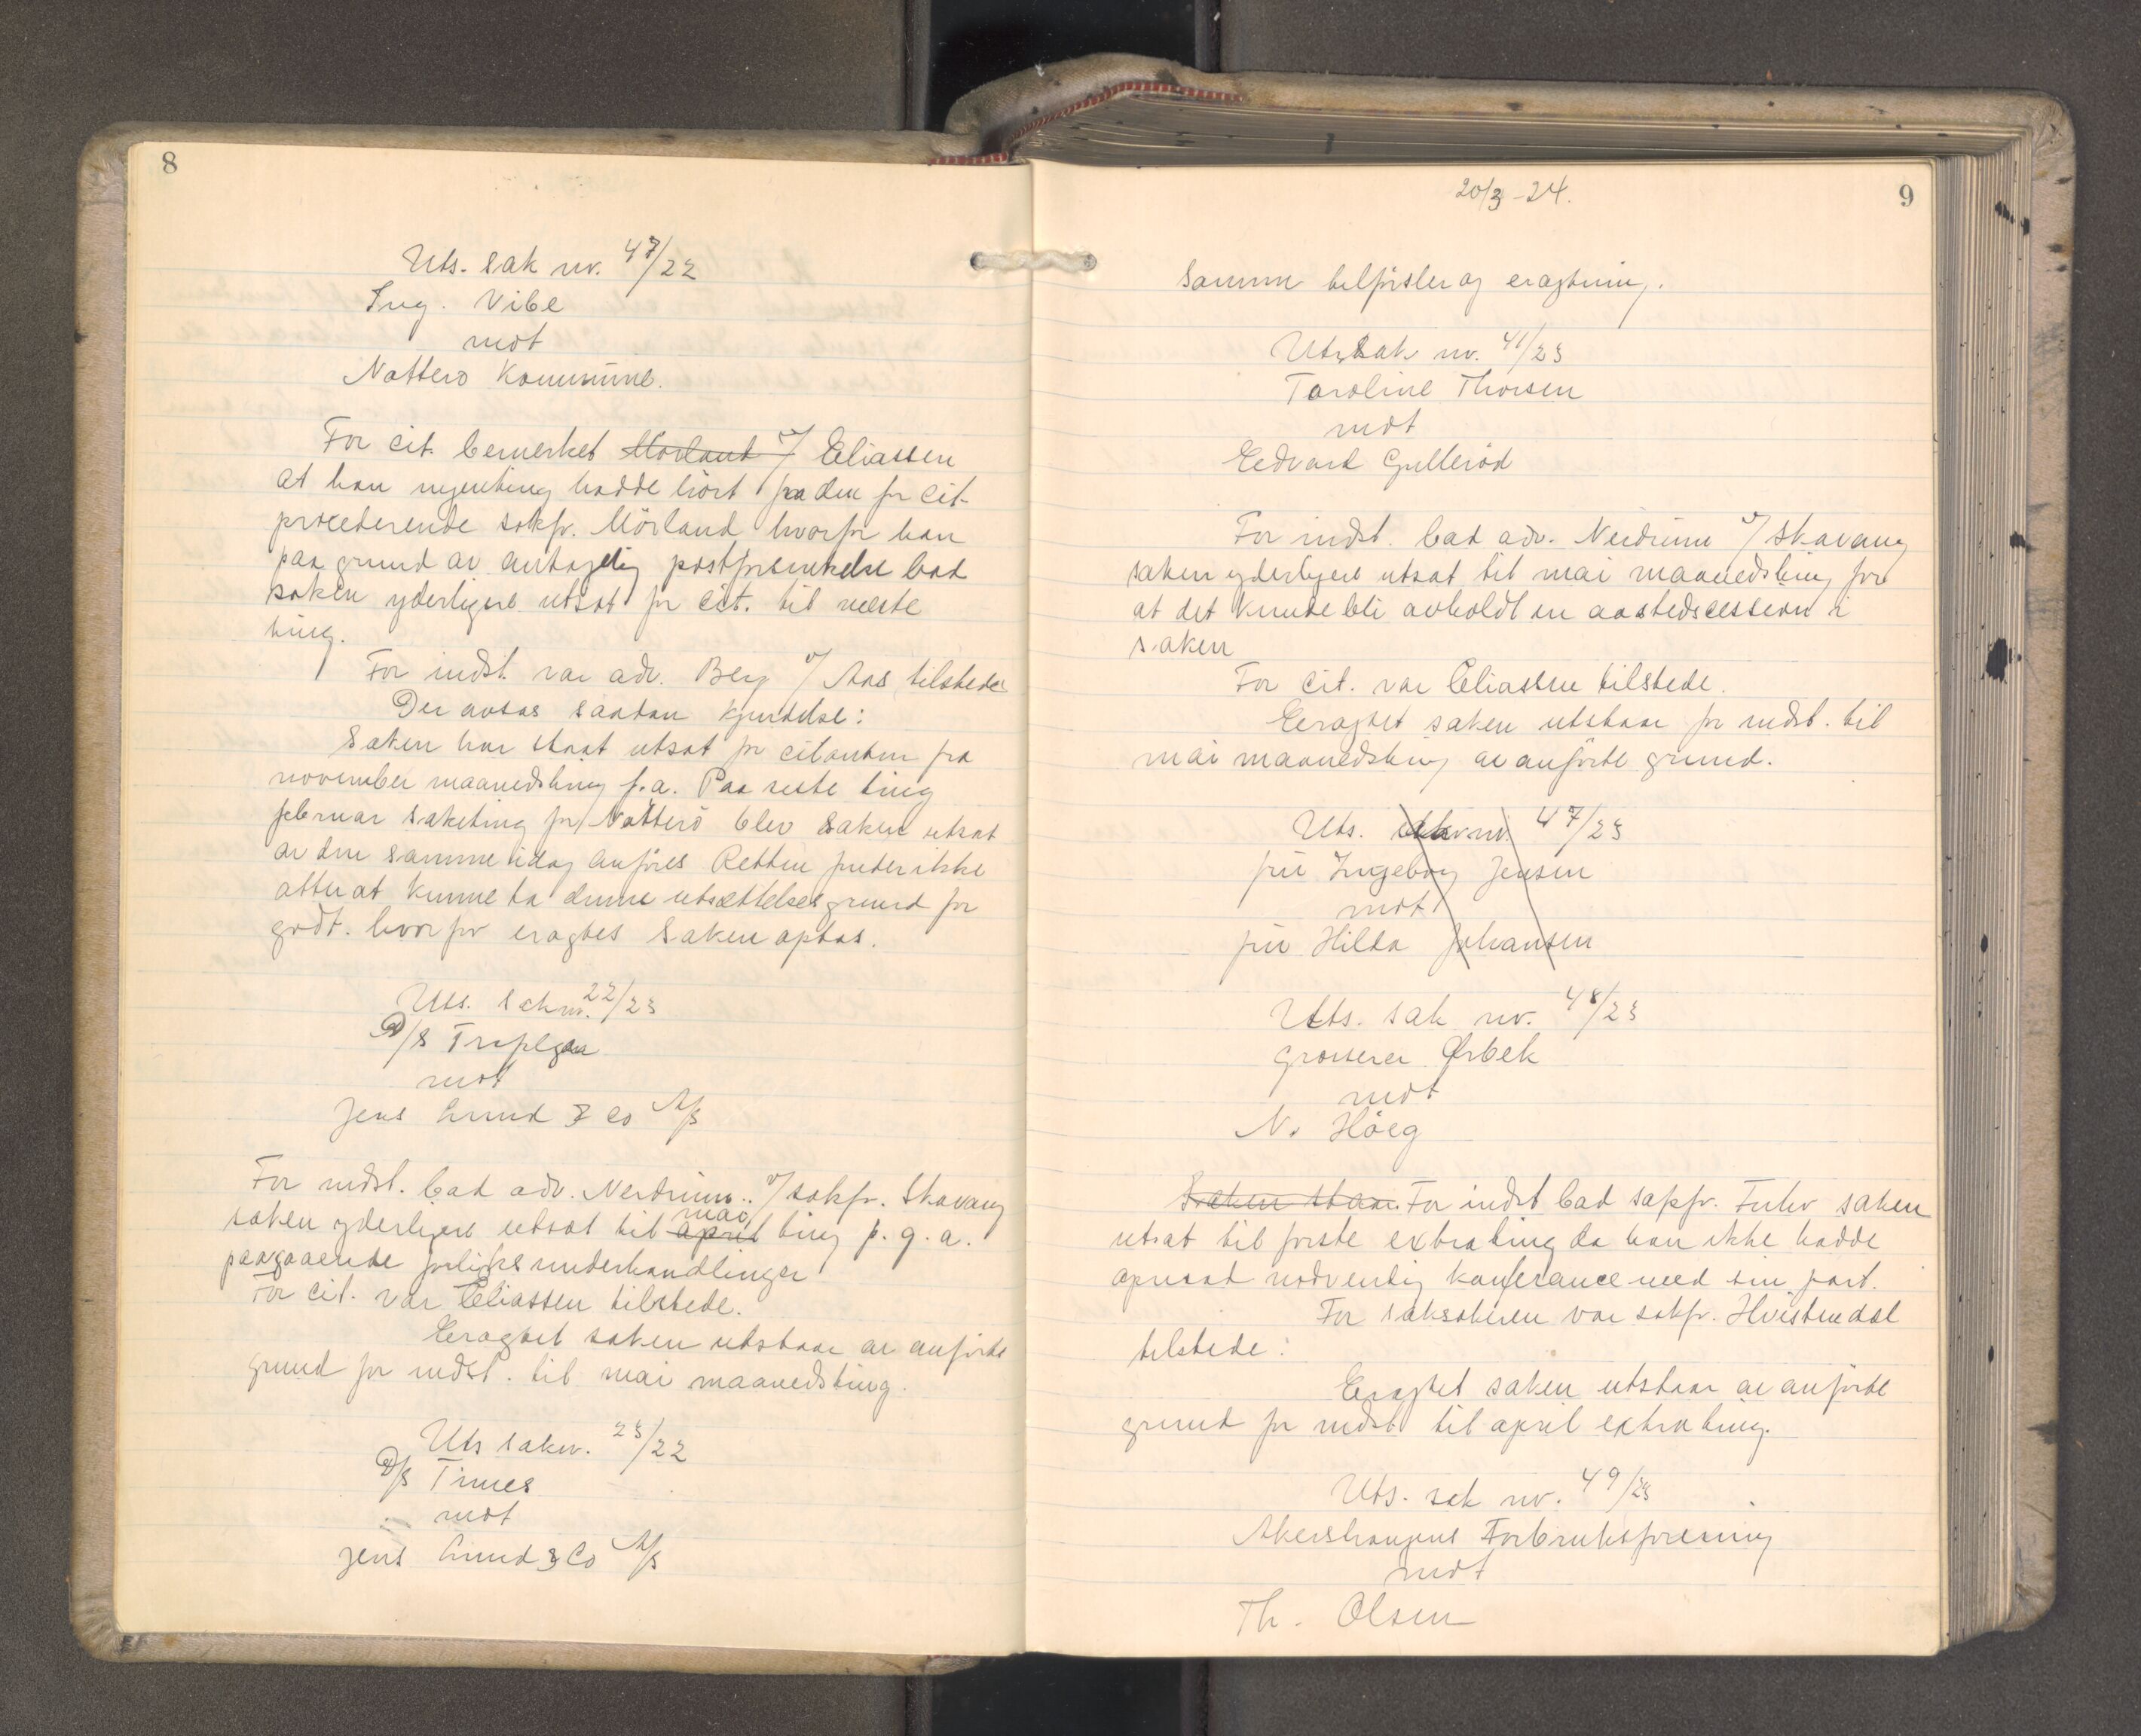 8
Uts. sak nr. 47/22
Ing. Vibe
mot
Nøtterø Kommune.
For cit. bemerket Mørland v/ Eliassen
at han ingenting hadde hørt fra den for cit.
procederende sakfr. Mörland hvorfor han
paa grund av antagelig postforsinkelse bad
saken yderligere utsat for cit. til næste
ting.
For indst. var adv. Berg v/ Aas tilstede
Der avsas saadan kjendelse:
Saken har staat utsat for citanten fra
november maanedsting f.a. Paa siste ting
februar saketing for Nøtterö blev saken utsat
av den samme idag anføres Retten finder ikke
atter at kunne ta denne utsættelsesgrund for
godt. hvorfor eragtes saken optas.
Uts. sak nr. 22/23
D/S
mot
Jens Lund & Co A/S
For indst. bad adv. Nerdrum v/ sakfr. Skavang
saken yderligere utsat til april mai ting p.g.a.
paagaaende forliksunderhandlinger
For cit. var Eliassen tilstede.
Eragtet saken utstaar av anførte
grund for indst. til mai maanedsting.
Uts saknr. 23/22
D/S Times
mot
Jens Lund & Co A/S
20/3-24.
9
Samme tilførsler og eragtning.
Uts. sak nr. 41/23
Taroline Thorsen
mot
Eedvard Gullerød
For indst. bad adv. Nerdrum v/ Skavang
saken yderligere utsat til mai maanedsting for
at det kunde bli avholdt en aastedscession i
saken
For cit. var Eliassen tilstede.
Eragtet saken utstaar for indst. til
mai maanedsting av anførte grund.
Uts. sak nr. 47/23
fru Ingeborg Jensen
mot
fru Hilda Johansen
Uts. sak nr. 48/23
grosserer Ørbek
mot
N. Höeg
Saken staar. For indst bad sakfr. saken
utsat til første extrating da han ikke hadde
opnaad nødvendig konferance med sin part.
For saksøkeren var sakfr. Hvistendal
tilstede:
Eragtet saken utstaar av anførte
grund for indst til april extrating.
Uts. sak nr. 49/23
Akershaugens Forbruksforening
mot
Th. Olsen